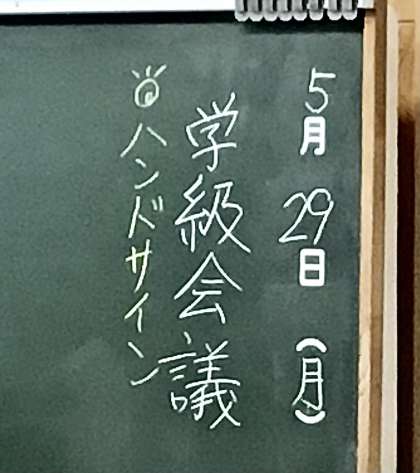 5月29日(月)
学級会議
ハンドサイン